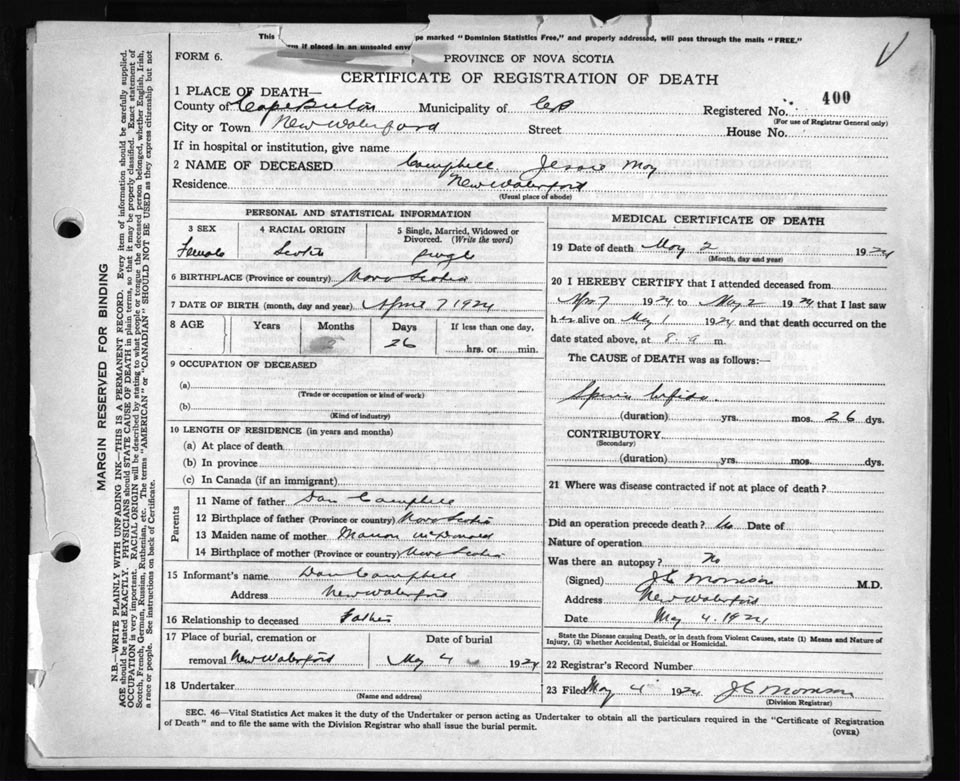 This
rm if placed in an unsealed enve
pe marked "Dominion Statistics Free," and properly addressed, will pass through the mails "FREE."
FORM 6.
PROVINCE OF NOVA SCOTIA
CERTIFICATE OF REGISTRATION OF DEATH
1 PLACE OF DEATH—
County of Cape Breton Municipality of CB Registered No. 400
(For use of Registrar General only)
City or Town New Waterford Street House No.
If in hospital or institution, give name
2 NAME OF DECEASED Campbell Jessie May
Residence New Waterford
(Usual place of abode)
PERSONAL AND STATISTICAL INFORMATION
3 SEX 4 RACIAL ORIGIN 5 Single, Married, Widowed or Divorced. (Write the word)
Female Scotch single
6 BIRTHPLACE (Province or country) Nova Scotia
7 DATE OF BIRTH (month, day and year) April 7 1924
8 AGE Years Months Days If less than one day,
26 hrs. or min.
9 OCCUPATION OF DECEASED
(a)
(Trade or occupation or kind of work)
(b)
(Kind of industry)
10 LENGTH OF RESIDENCE (in years and months)
(a) At place of death
(b) In province
(c) In Canada (if an immigrant)
Parents
11 Name of father Dan Campbell
12 Birthplace of father (Province or country) Nova Scotia
13 Maiden name of mother Marion McDonald
14 Birthplace of mother (Province or country) Nova Scotia
15 Informant's name Dan Campbell
Address New Waterford
16 Relationship to deceased Father
17 Place of burial, cremation or Date of burial
removal New Waterford May 4 1924
18 Undertaker
(Name and address)
MEDICAL CERTIFICATE OF DEATH
19 Date of death May 2 1924
(Month, day and year)
20 I HEREBY CERTIFY that I attended deceased from
Apr 7 1924 to May 2 1924 that I last saw
her alive on May 1 1924 and that death occurred on the
date stated above, at 8 a m.
The CAUSE of DEATH was as follows:—
Spina bifida.
(duration) yrs. mos. 26 dys.
CONTRIBUTORY
(Secondary)
(duration) yrs. mos. dys.
21 Where was disease contracted if not at place of death?
Did an operation precede death? No Date of
Nature of operation
Was there an autopsy? No
(Signed) J C Morrison M.D.
Address New Waterford
Date May 4, 1924
State the Disease causing Death, or in death from Violent Causes, state (1) Means and Nature of
Injury, (2) whether Accidental, Suicidal or Homicidal.
22 Registrar's Record Number
23 Filed May 4 1924 J C Morrison
(Division Registrar)
SEC. 46—Vital Statistics Act makes it the duty of the Undertaker or person acting as Undertaker to obtain all the particulars required in the "Certificate of Registration
of Death" and to file the same with the Division Registrar who shall issue the burial permit.
(OVER)
MARGIN RESERVED FOR BINDING
N.B.—WRITE PLAINLY WITH UNFADING INK—THIS IS A PERMANENT RECORD. Every item of information should be carefully supplied.
AGE should be stated EXACTLY. PHYSICIANS should STATE CAUSE OF DEATH in plain terms, so that it may be properly classified. Exact statement of
OCCUPATION is very important. RACIAL ORIGIN will be described by stating to what people or tongue the deceased person belonged, whether English, Irish,
Scotch, French, German, Russian, Ruthenian, etc. The terms "AMERICAN" or "CANADIAN" SHOULD NOT BE USED as they express citizenship but not
a race or people. See instructions on back of Certificate.